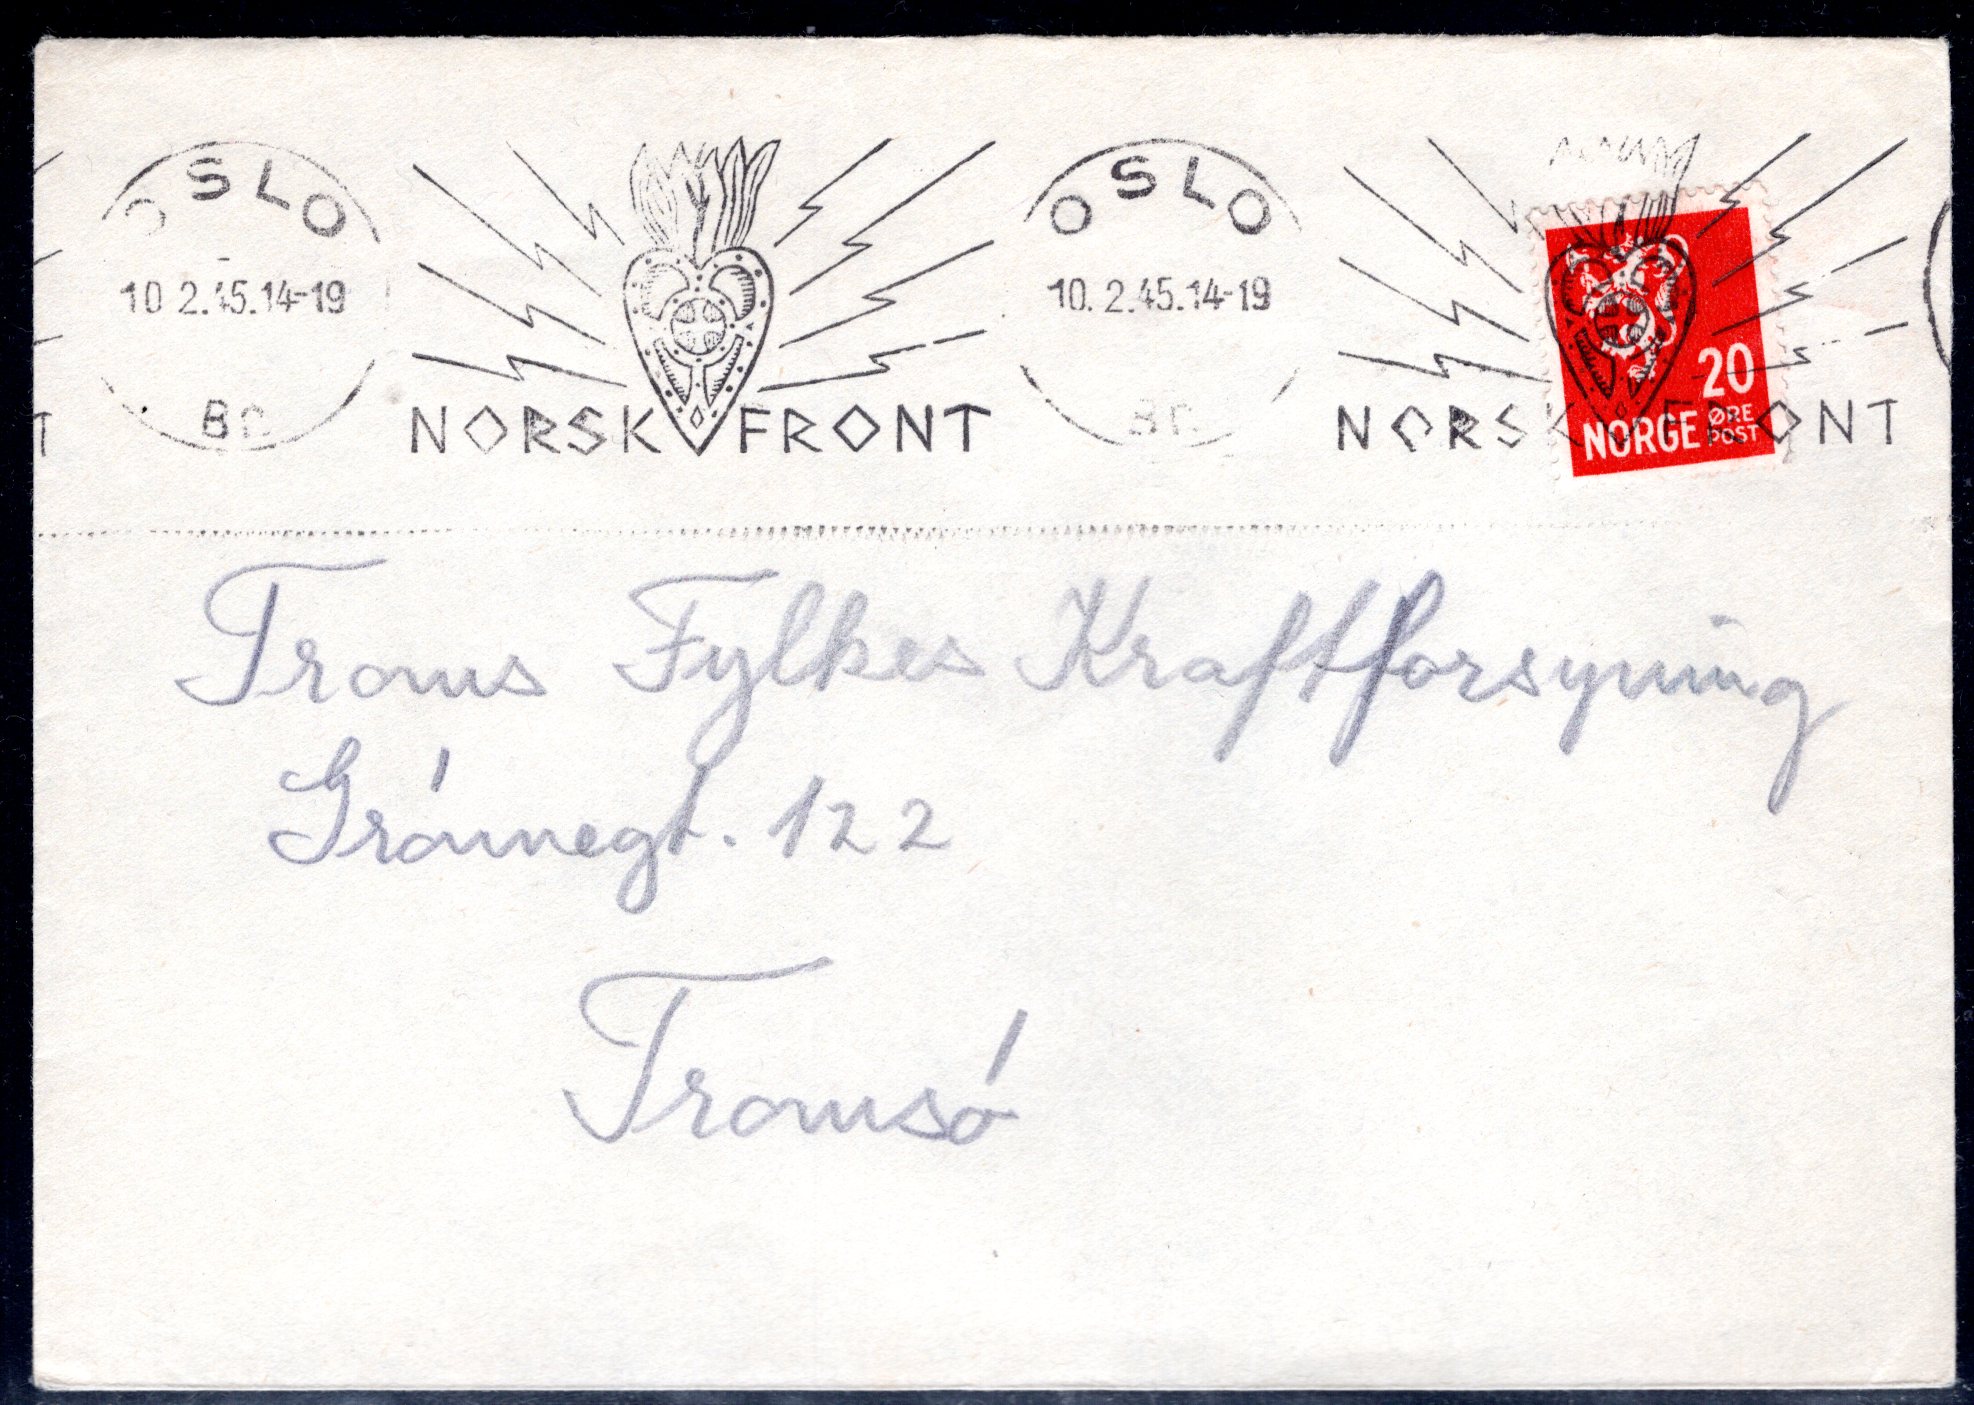 OSLO
10.2.45.14-19
Br
NORSK FRONT
OSLO
10.2.45.14-19
Br
NORSK FRONT
20
NORGE ØRE
POST
Troms Fylkes Kraftforsyning
Grónnegt. 122
Tromsó